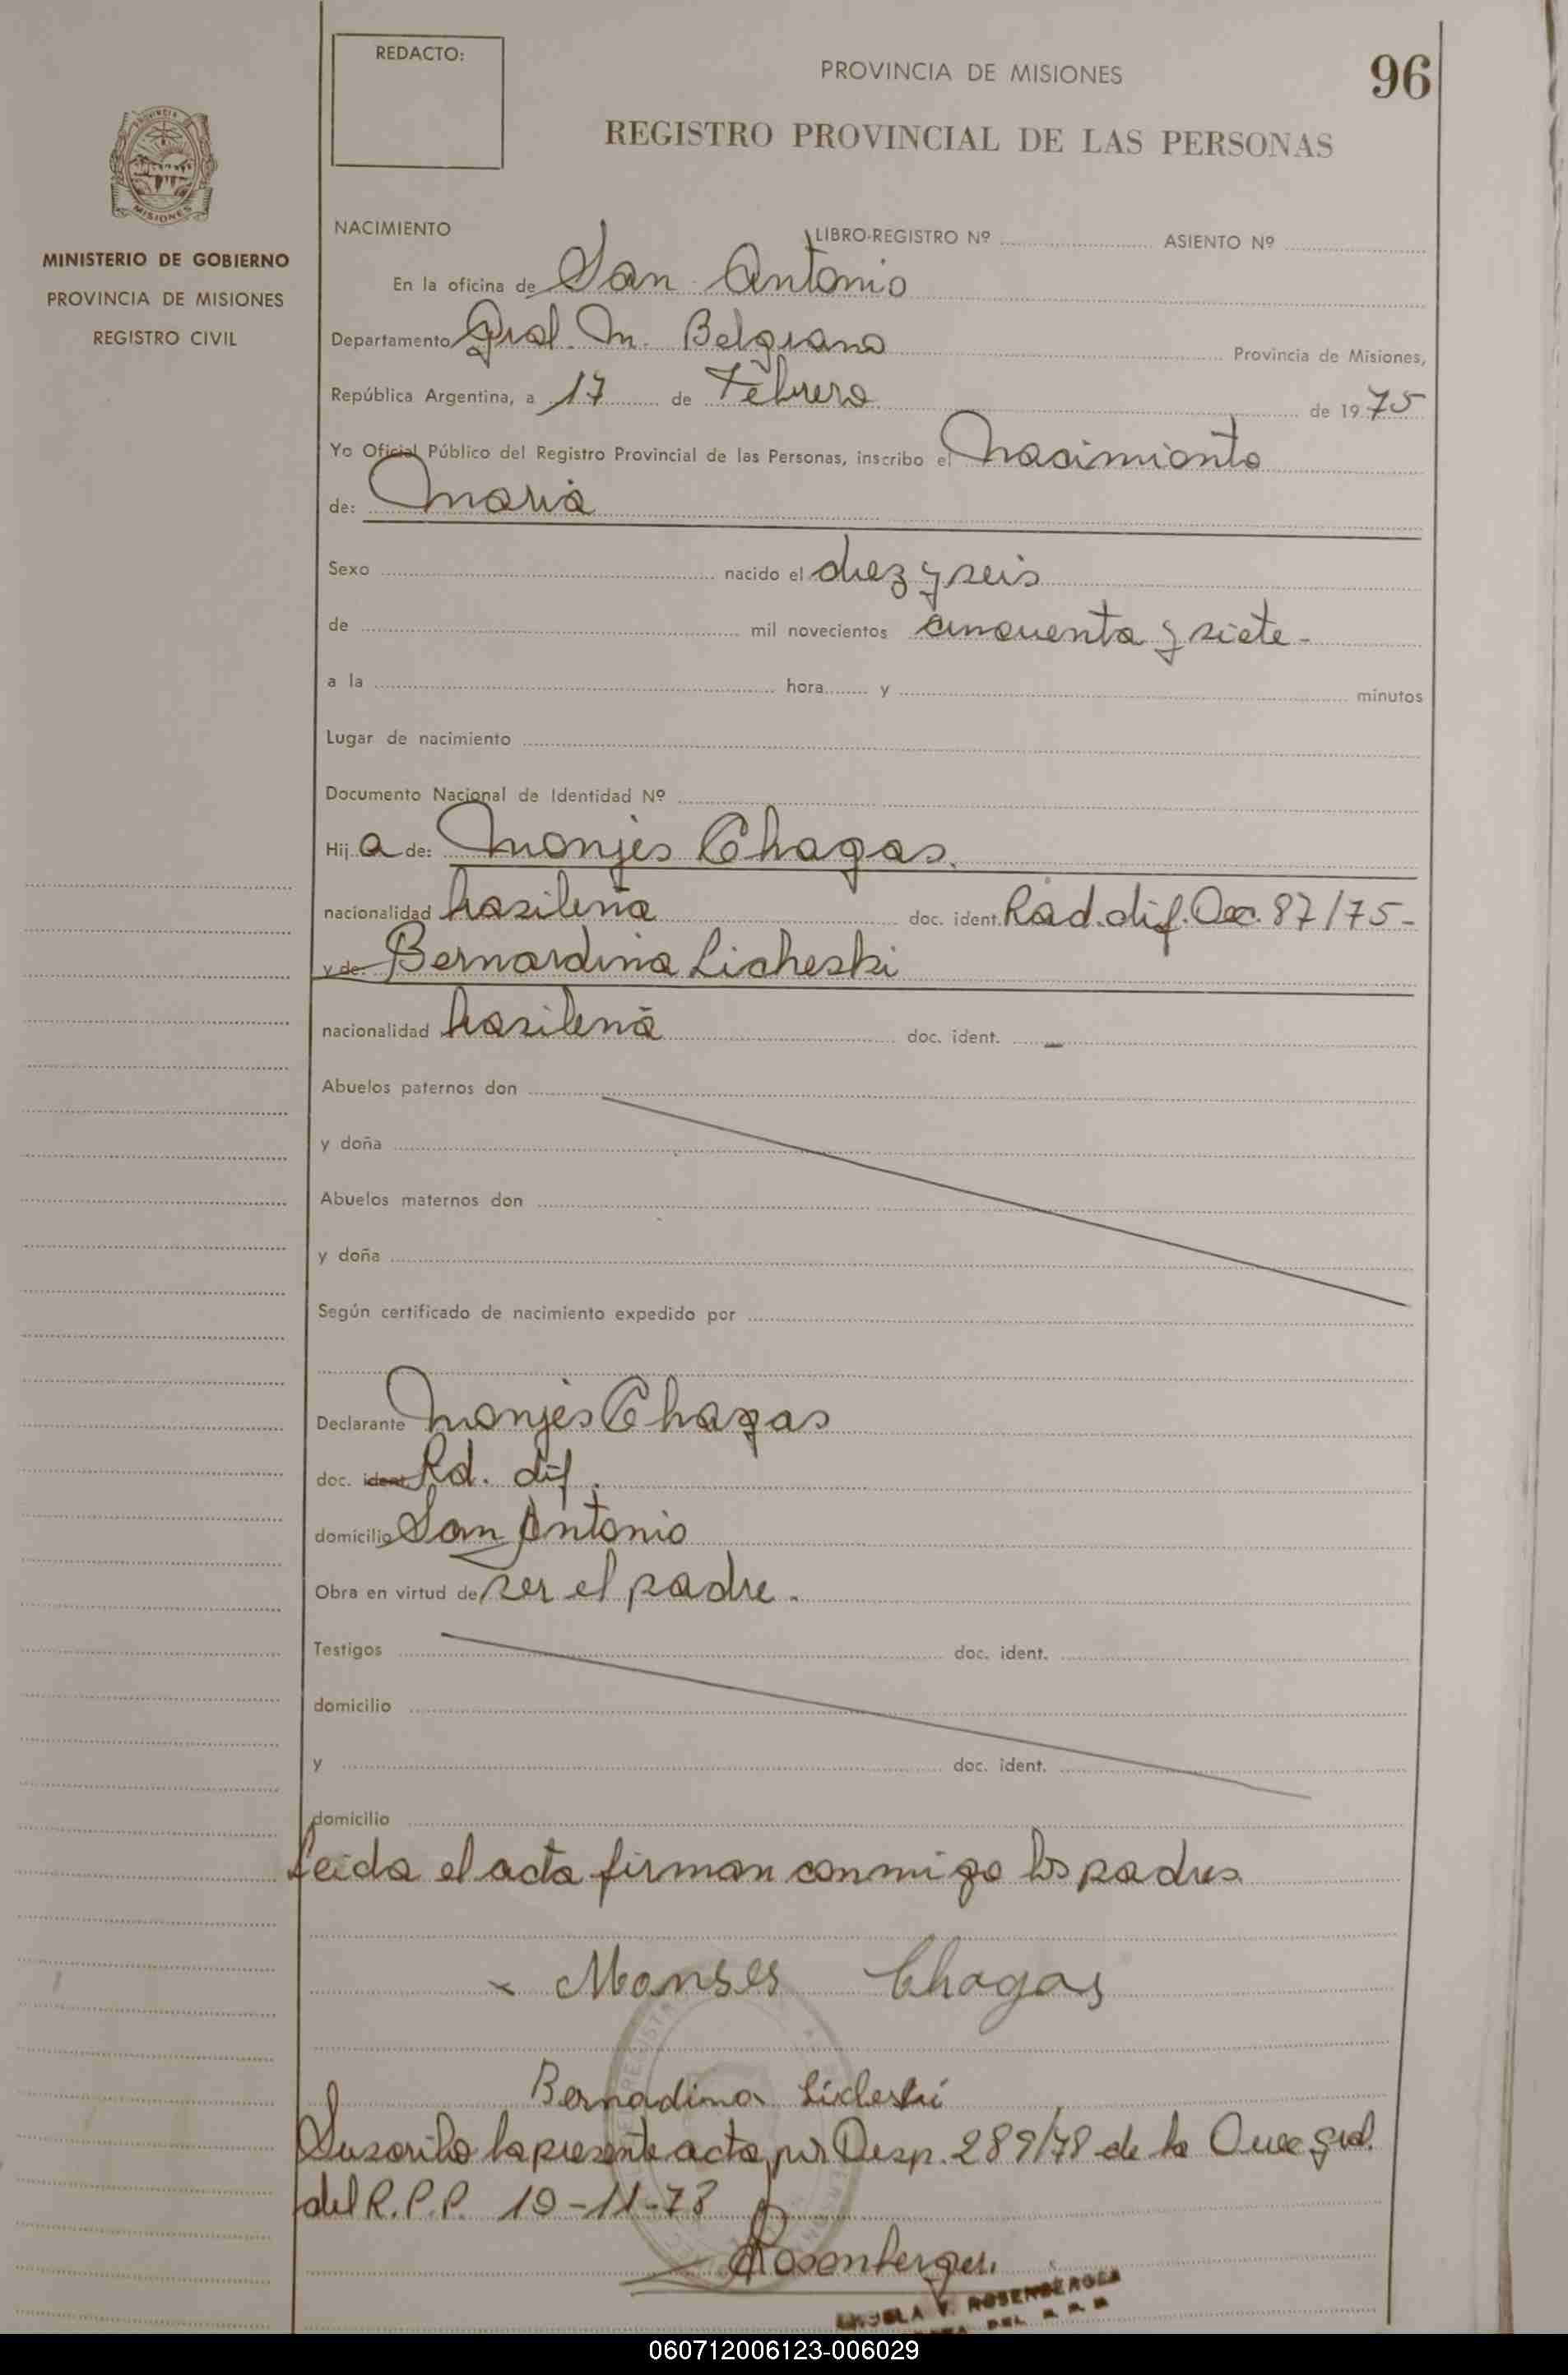 REDACTO:
PROVINCIA DE MISIONES
96
REGISTRO PROVINCIAL DE LAS PERSONAS
PROVINCIA
MISIONES
MINISTERIO DE GOBIERNO
PROVINCIA DE MISIONES
REGISTRO CIVIL
NACIMIENTO LIBRO-REGISTRO Nº ASIENTO Nº
En la oficina de San Antonio
Departamento Gral. M. Belgrano Provincia de Misiones,
República Argentina, a 17 de Febrero de 1975
Yo Oficial Público del Registro Provincial de las Personas, inscribo el Nacimiento
de: Maria
Sexo nacido el diez y seis
de mil novecientos cincuenta y siete-
a la hora y minutos
Lugar de nacimiento
Documento Nacional de Identidad Nº
Hija de: Monjes Chagas.
nacionalidad brasileña doc. ident. Rad. dif. Occ. 87/75-
y de: Bernardina Licheski
nacionalidad brasileña doc. ident. -
Abuelos paternos don
y doña
Abuelos maternos don
y doña
Según certificado de nacimiento expedido por
Declarante Monjes Chagas
doc. ident. Rd. dif.
domicilio San Antonio
Obra en virtud de ser el padre.
Testigos doc. ident.
domicilio
y doc. ident.
domicilio
Leida el acta firman conmigo los padres
x Monses Chagas
Bernadina Licheski
Suscribo la presente acta por Desp. 289/78 de la Gral.
del R.P.P. 10-11-78
Rosenberger
V. ROSENBERGER
DEL R. P. P.
060712006123-006029